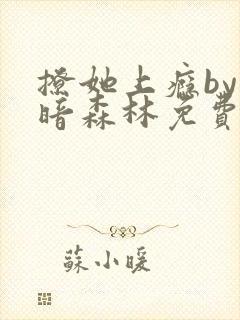 撩她上癮by
暗森林免費
蘇小暖